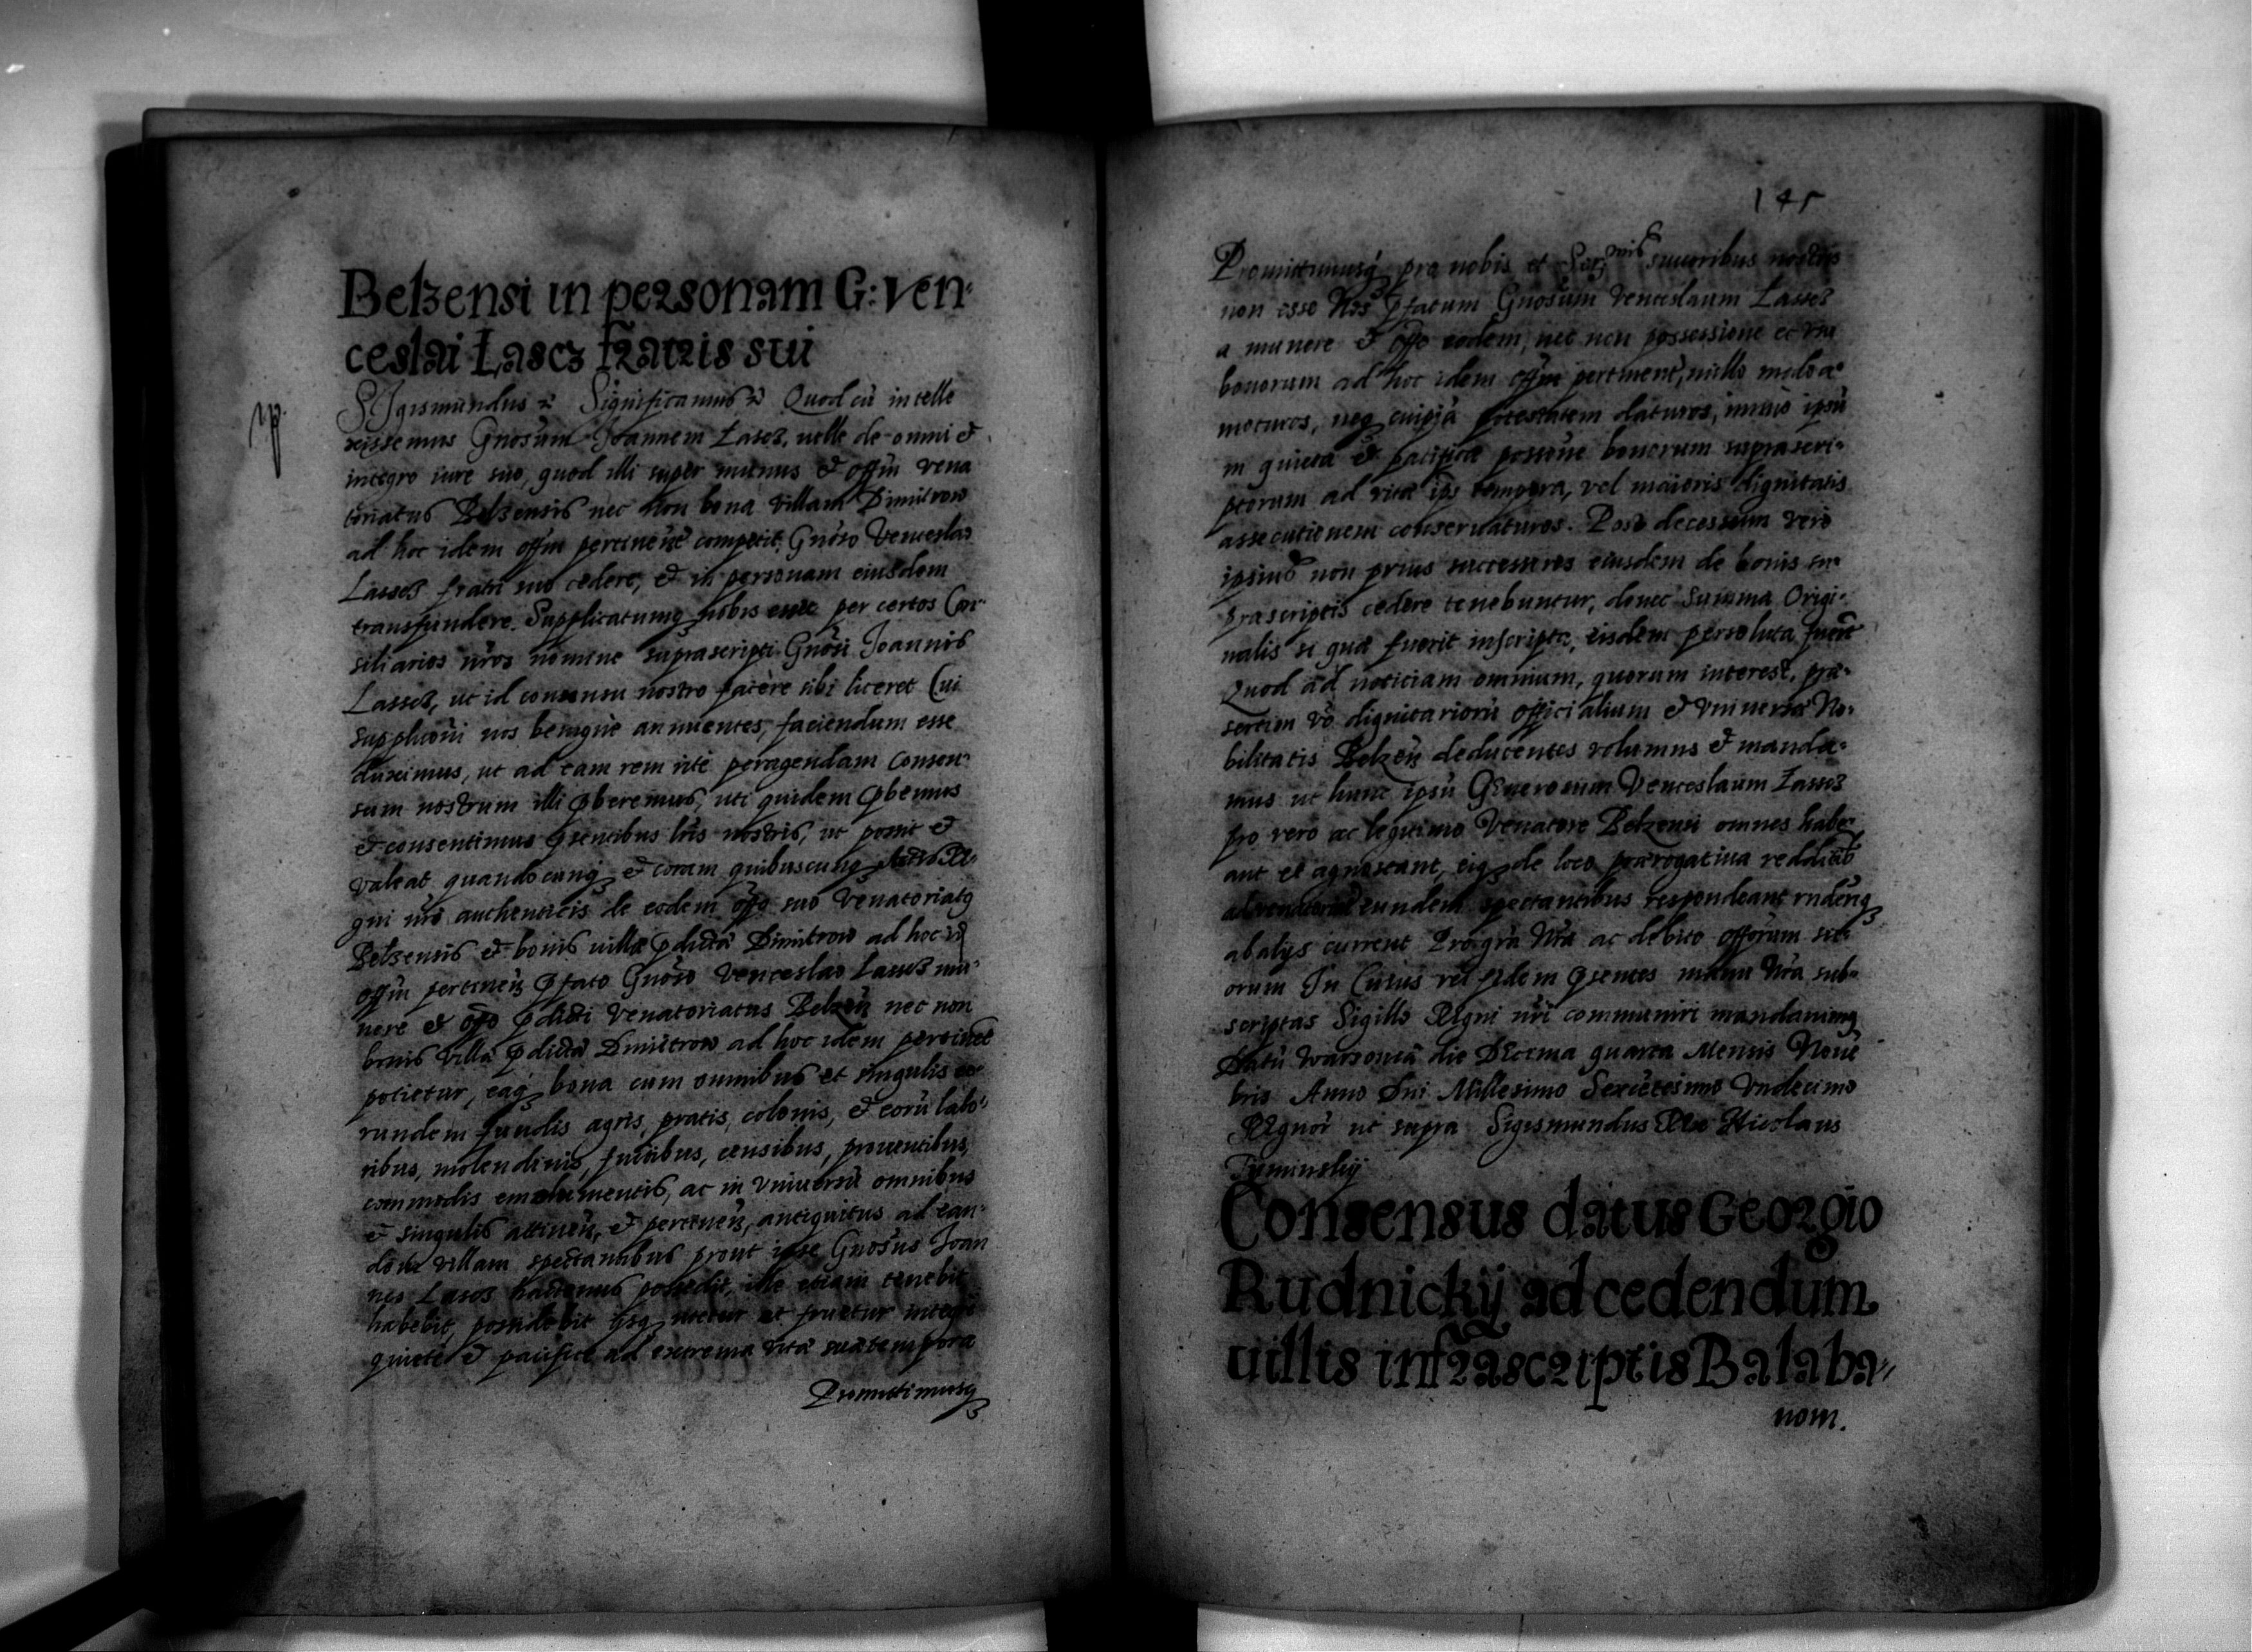 Belzensi in personam G: Ven-
ceslai Łascz fratris sui
Sigismundus Significamus Quod cũ intelle
xissemus Gnosum Joannem Łascz, uelle de omni et
integro iure suo, quod illi super munus et offm vena
toriatus Belzensis nec non bona villam Dimitrow
ad hoc idem offm pertineñ competit, Gnoso Venceslao
Łascz fratri suo cedere, et in personam eiusdem
transfundere. Supplicatumq nobis esset per certos Con-
siliarios nros nomine suprascripti Gnosi Joannis
Łascz, ut id consensu nostro facere sibi liceret Cui
suppliconi nos benigne annuentes, faciendum esse
duximus, ut ad eam rem rite peragendam Consen-
sum nostrum illi pberemus, uti quidem pbemus
et consentimus psentibus lris nostris, ut possit et
valeat quandocunq et coram quibuscunq Actis Re-
gni nri authenticis de eodem offo suo Venatoriatq
Belzensis et bonis villa pdicta Dimitrow ad hoc id
offm pertineñ pfato Gnoso Venceslao Łascz mu-
nere et offo pdicti Venatoriatus Belzeñ nec non
bonis villa pdicta Dimitrow ad hoc idem pertinet
potietur, eaq bona cum omnibus et singulis eo-
rundem fundis agris, pratis, colonis, et eorũ labo-
ribus, molendinis, fructibus, censibus, prouentibus,
commodis emolumentis, ac in vniuersũ omnibus
et singulis attineñ, et pertineñ, antiquitus ad ean-
dem villam spectantibus prout ipse Gnosus Joan
nes Łascz hactenus possedit, ille etiam tenebit
habebit, possidebit ijsq utetur et fruetur integre
quiete et pacifice ad extrema vita sua tempora
Promittimusq
145
Promittimusq pro nobis et Sermis suuoribus nostris
non esse Nos pfatum Gnosum Venceslaum Łascz
a munere et offo eodem, nec non possessione et vsu
bonorum ad hoc idem offm pertineñ, nullo modo a-
moturos, neq cuipiã potestatem daturos, immo ipsũ
in quieta et pacifica possne bonorum suprascri-
ptorum ad vita ips tempora, vel maioris dignitatis
assecutionem conseruaturos. Post decessum vero
ipsius non prius successores eiusdem de bonis su-
prascriptis cedere tenebuntur, donec Summa Origi-
nalis si qua fuerit inscripta, eisdem persoluta fuerit
Quod ad noticiam omnium, quorum interest, pra-
sertim vo dignitariorũ officialium et vniuersa No-
bilitatis Belzeñ deducentes volumus et manda-
mus ut hunc ipsũ Generosum Venceslaum Łascz
pro vero ac legitimo Venatore Belzensi omnes habe-
ant et agnoscant, eiq de loco prarogatiua redditib
ad venatorem eundem spectantibus respondeant rnderiq
ab alijs current Pro gra Nra ac debito offorum su-
orum In Cuius rei fidem psentes manu Nra sub-
scriptas Sigillo Regni nri communiri mandauimq
Datũ Warsouia die Decima quarta Mensis Noue
bris Anno Dni Millesimo Sexcetesimo Vndecimo
Regnor ut supra Sigismundus Rex Nicolaus
Consensus datus Georgio
Rudnickij ad cedendum
uillis infrascriptis Balaba-
nom.